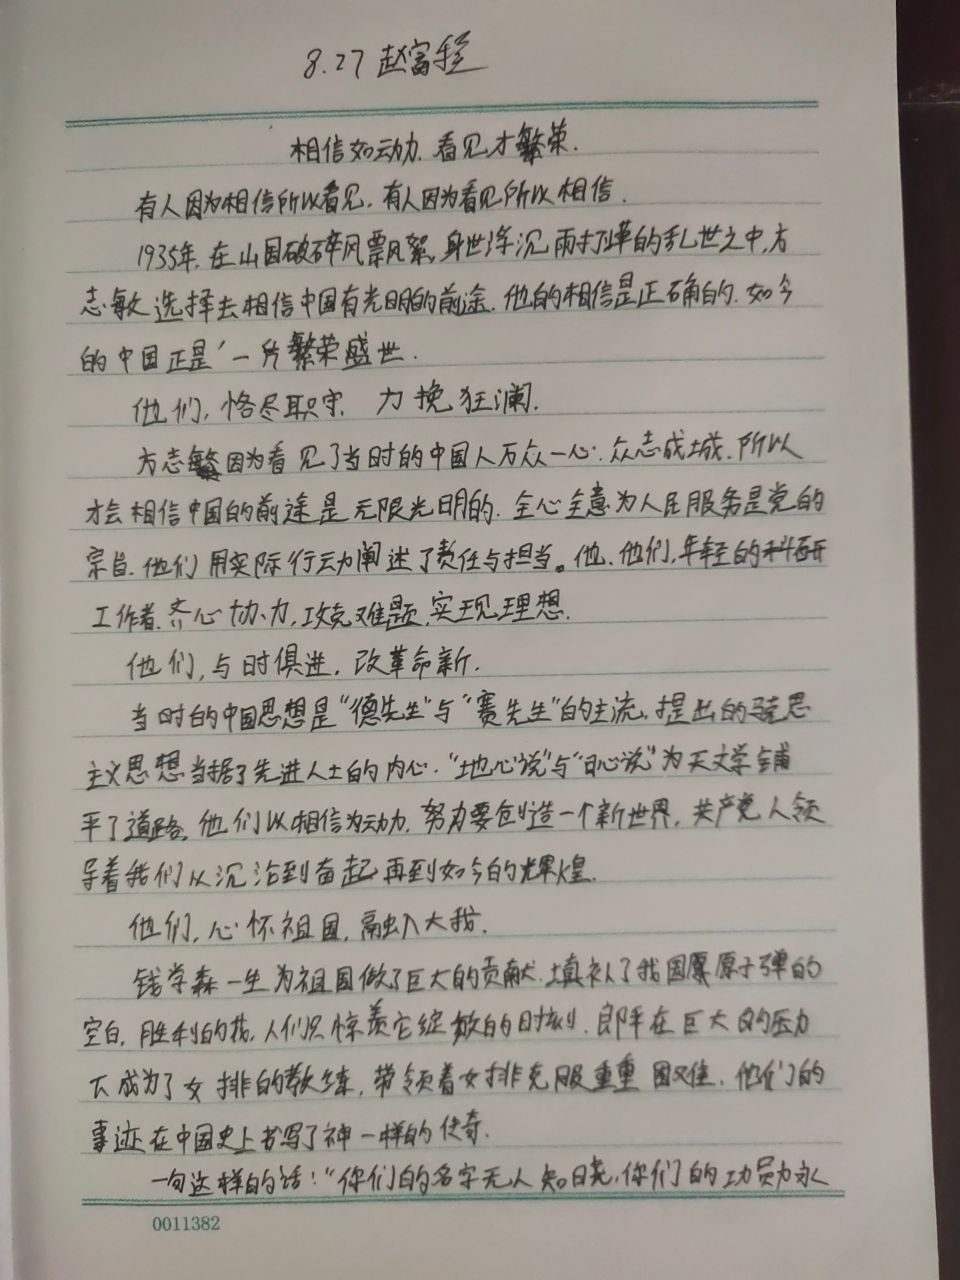 8.27 赵富程
相信如动力,看见才繁荣.
有人因为相信所以看见,有人因为看见所以相信.
1935年,在山国破碎风飘絮,身世浮沉雨打萍的乱世之中,方
志敏选择去相信中国有光明的前途,他的相信是正确的.如今
的中国正是一片繁荣盛世.
他们,恪尽职守,力挽狂澜.
方志因为看见了当时的中国人万众一心,众志成城,所以
才会相信中国的前途是无限光明的.全心全意为人民服务是党的
宗旨.他们用实际行动阐述了责任与担当。他、他们,年轻的科研
工作者.齐心协力,攻克难题,实现理想.
他们,与时俱进,改革命新.
当时的中国思想是“德先生”与“赛先生”的主流,提出的马克思
主义思想当据了先进人士的内心.“地心说”与“日心说”为天文学铺
平了道路,他们以相信为动力,努力要创造一个新世界,共产党人领
导着我们从沉沦到奋起再到如今的辉煌.
他们,心怀祖国,融入大我.
钱学森一生为祖国做了巨大的贡献.填补了我国原子弹的
空白,胜利的花,人们只惊羡它绽放的时刻.郎平在巨大的压力
下成为了女排的教练,带领着女排克服重重困难,他们的
事迹在中国史上书写了神一样的传奇.
一句这样的话:“你们的名字无人知晓,你们的功勋永
0011382